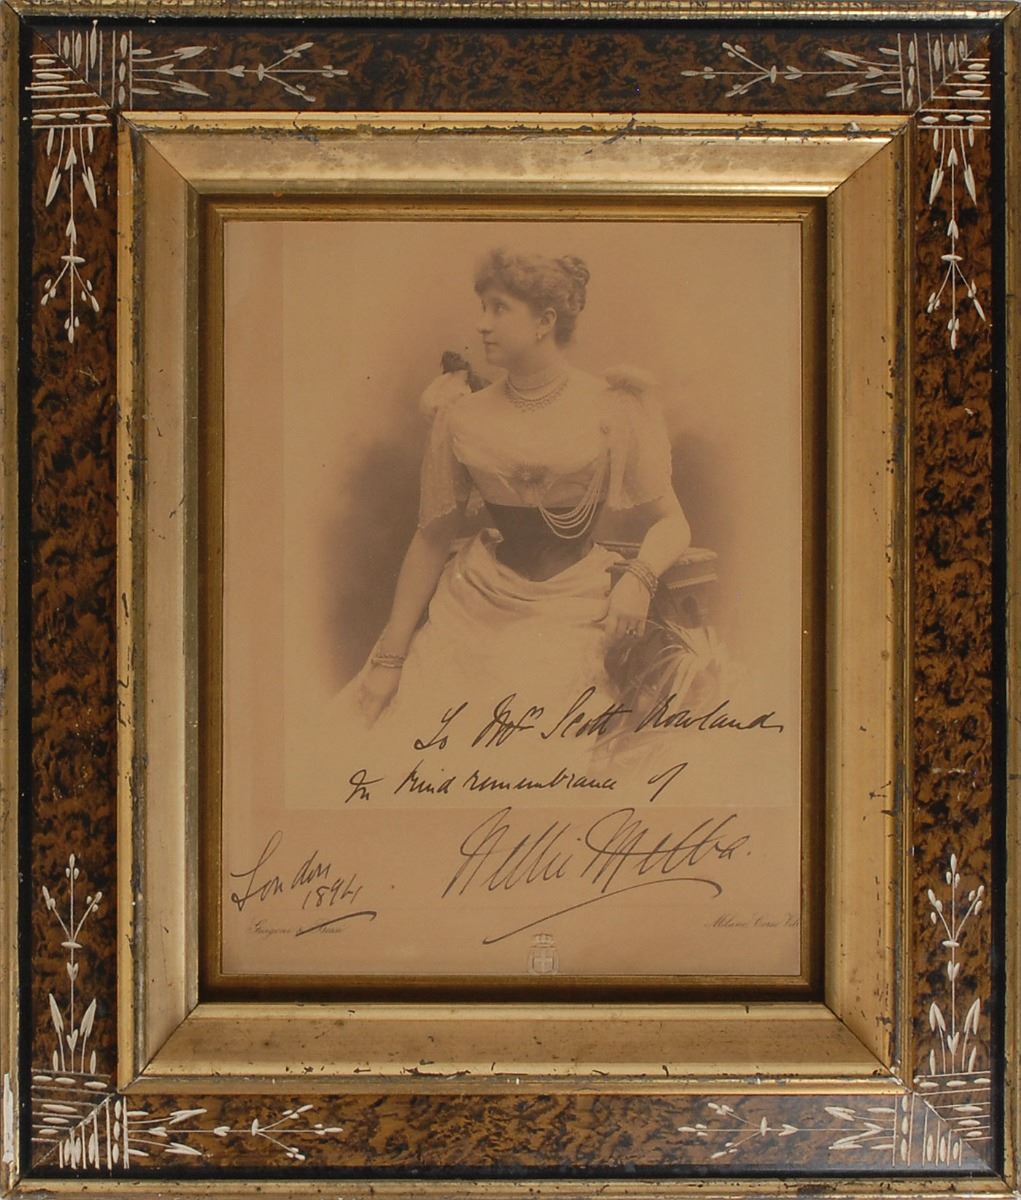 To Mrs Scott Rowland
In kind remembrance of
Nellie Melba.
London
1894
&
Milano, Corso